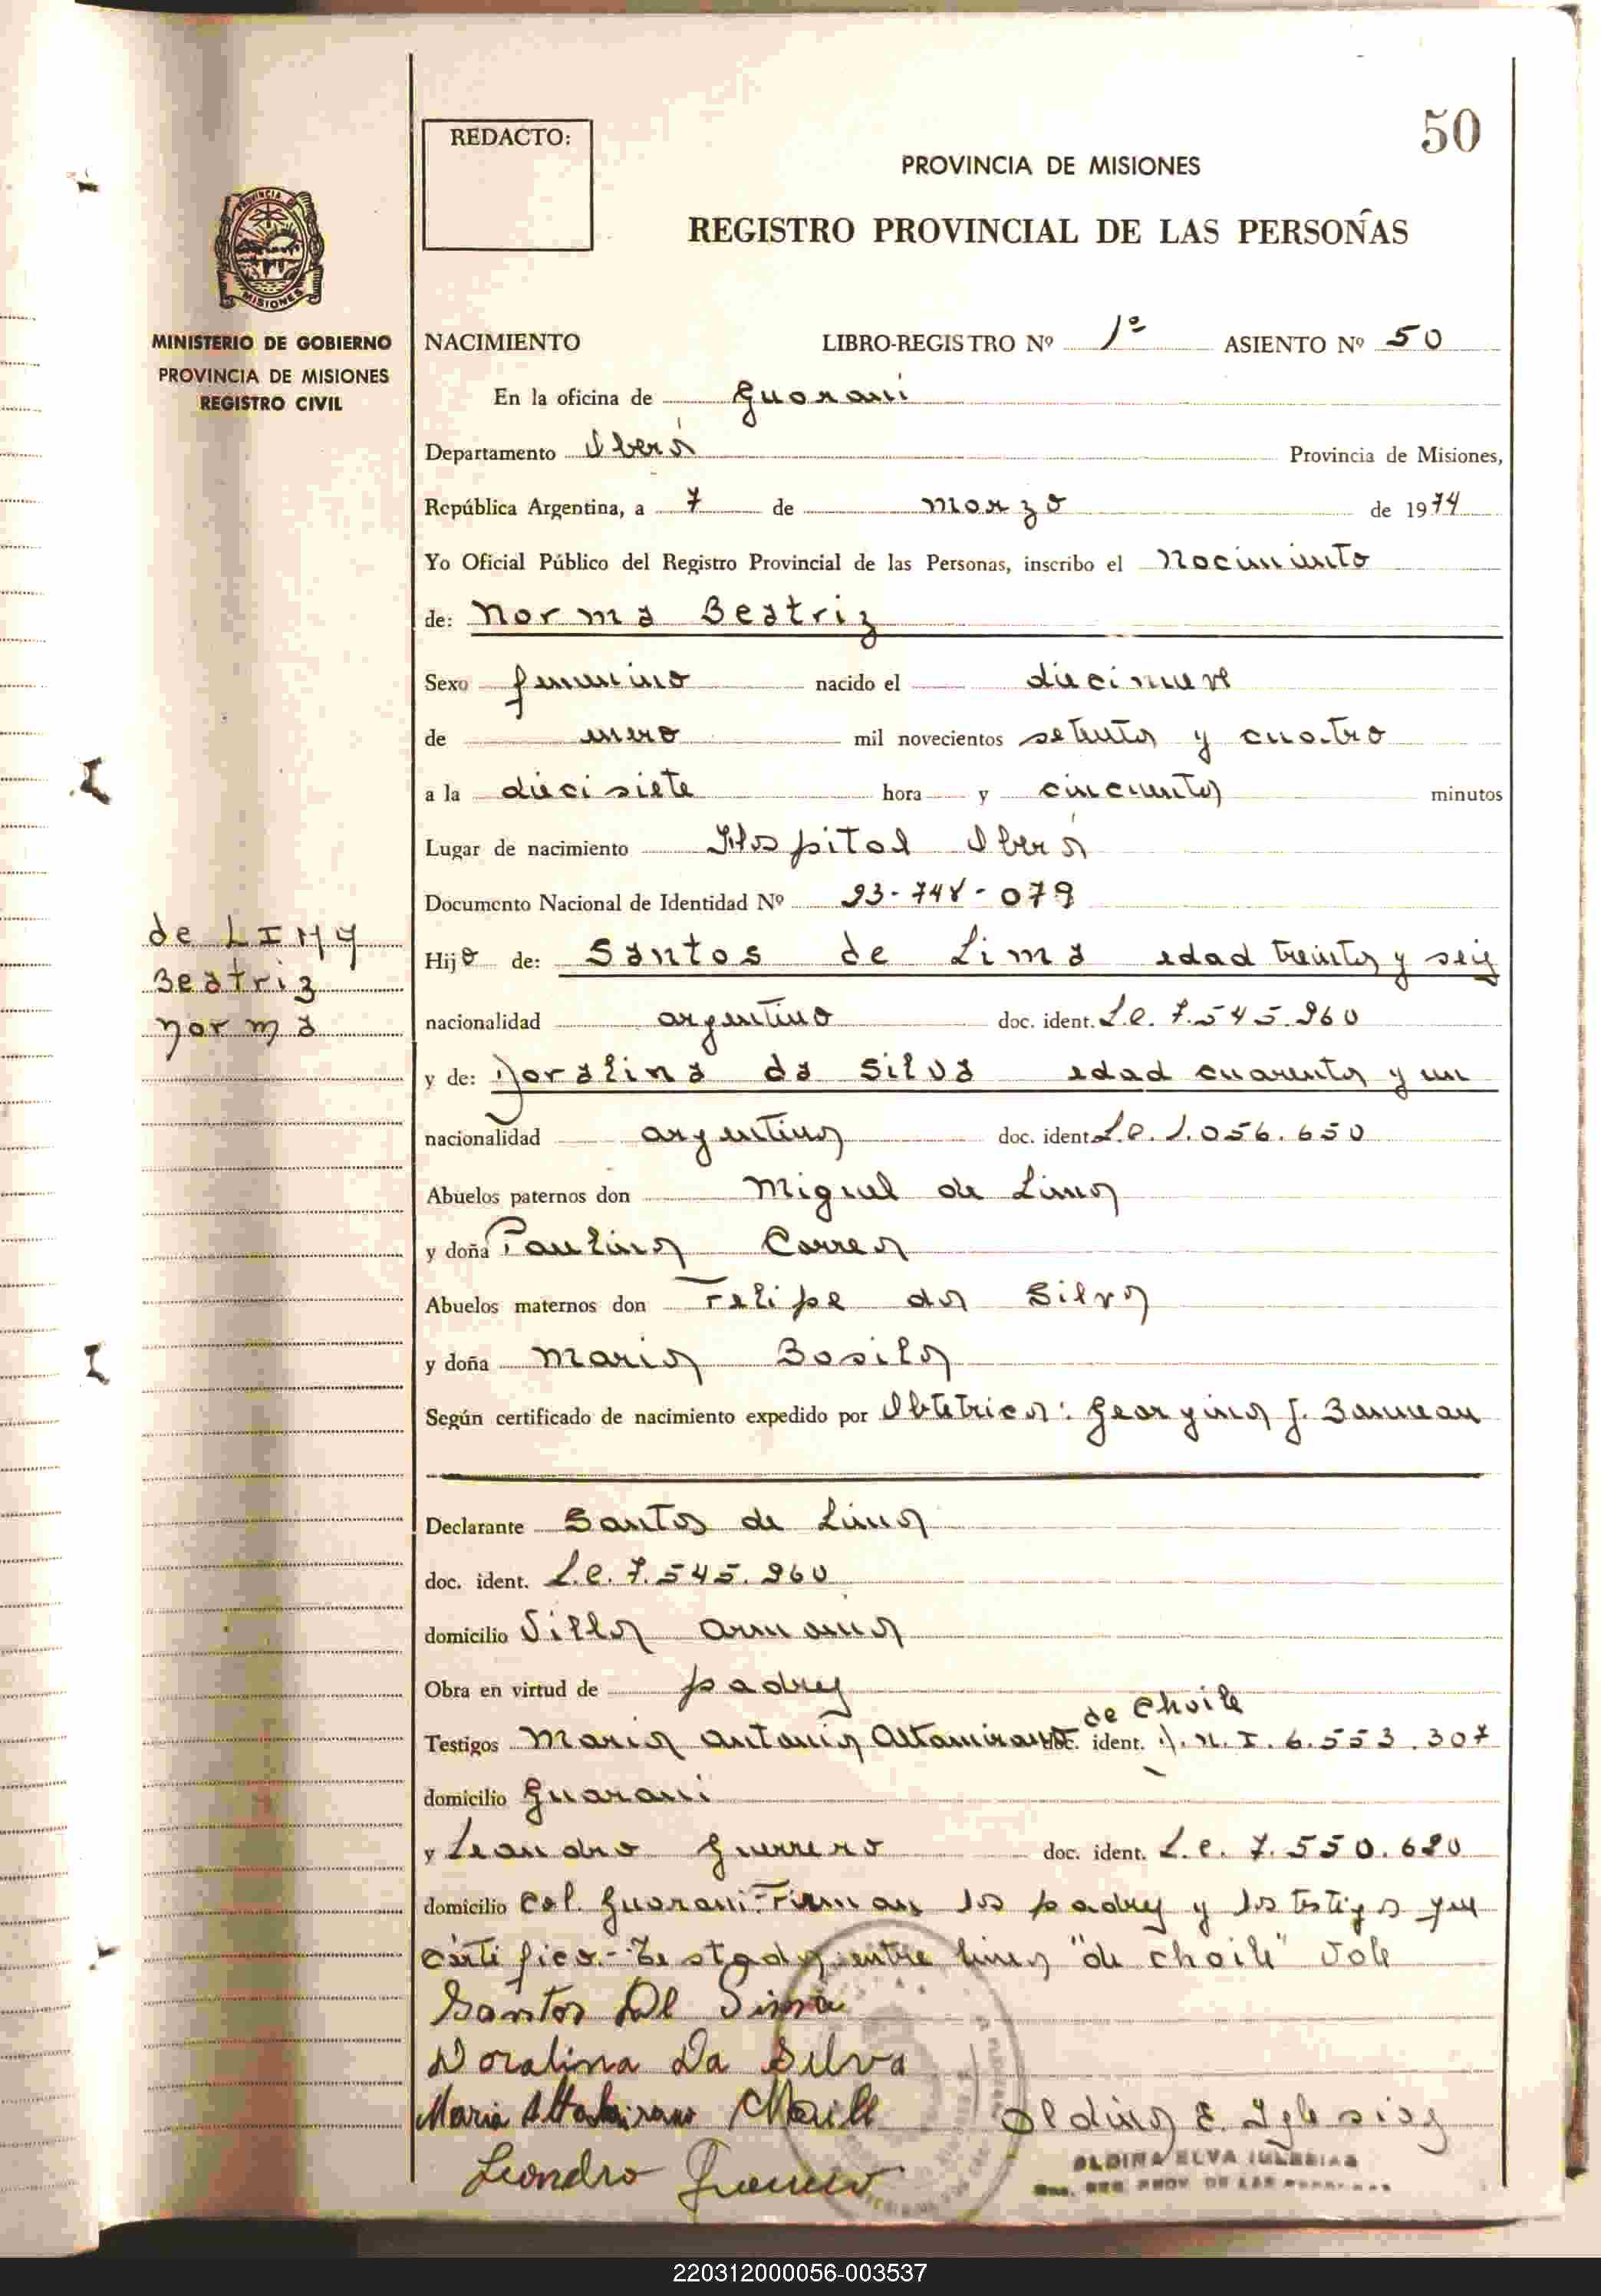 50
REDACTO:
PROVINCIA DE MISIONES
REGISTRO PROVINCIAL DE LAS PERSONAS
MISIONES
MINISTERIO DE GOBIERNO
PROVINCIA DE MISIONES
REGISTRO CIVIL
NACIMIENTO LIBRO-REGISTRO Nº 1º ASIENTO Nº 50
En la oficina de Guaraní
Departamento Oberá Provincia de Misiones,
República Argentina, a 7 de marzo de 1974
Yo Oficial Público del Registro Provincial de las Personas, inscribo el Nacimiento
de: Norma Beatriz
Sexo femenino nacido el diecinueve
de enero mil novecientos setenta y cuatro
a la diecisiete hora y cincuenta minutos
Lugar de nacimiento Hospital Oberá
Documento Nacional de Identidad Nº 23-748-079
de LIMA
Beatriz
Norma
Hija de: Santos de Lima edad treinta y seis
nacionalidad argentino doc. ident. L.E. 7.545.960
y de: Doralina da Silva edad cuarenta y un
nacionalidad argentina doc. ident. L.C. 1.056.650
Abuelos paternos don Miguel de Lima
y doña Paulina Correa
Abuelos maternos don Felipe da Silva
y doña Maria Basila
Según certificado de nacimiento expedido por Obtetrica: Georgina J.
Declarante Santos de Lima
doc. ident. L.E. 7.545.960
domicilio Villa Armonia
Obra en virtud de padres
de Choile
Testigos Maria Antonia Altamirano doc. ident. D.N.I. 6.553.307
domicilio Guarani
y Leandro Guerrero doc. ident. L.E. 7.550.620
domicilio Col. Guarani.- Firman los padres y los testigos que
certifico.- Testado, entre linea "de choile" Vale
Santos De Lima
Doralina Da Silva
Maria Altamirano
Leandro Guerrero
Aldina E. Iglesias
ALDINA ELVA IGLESIAS
REG. PROV. DE LAS PERSONAS
220312000056-003537